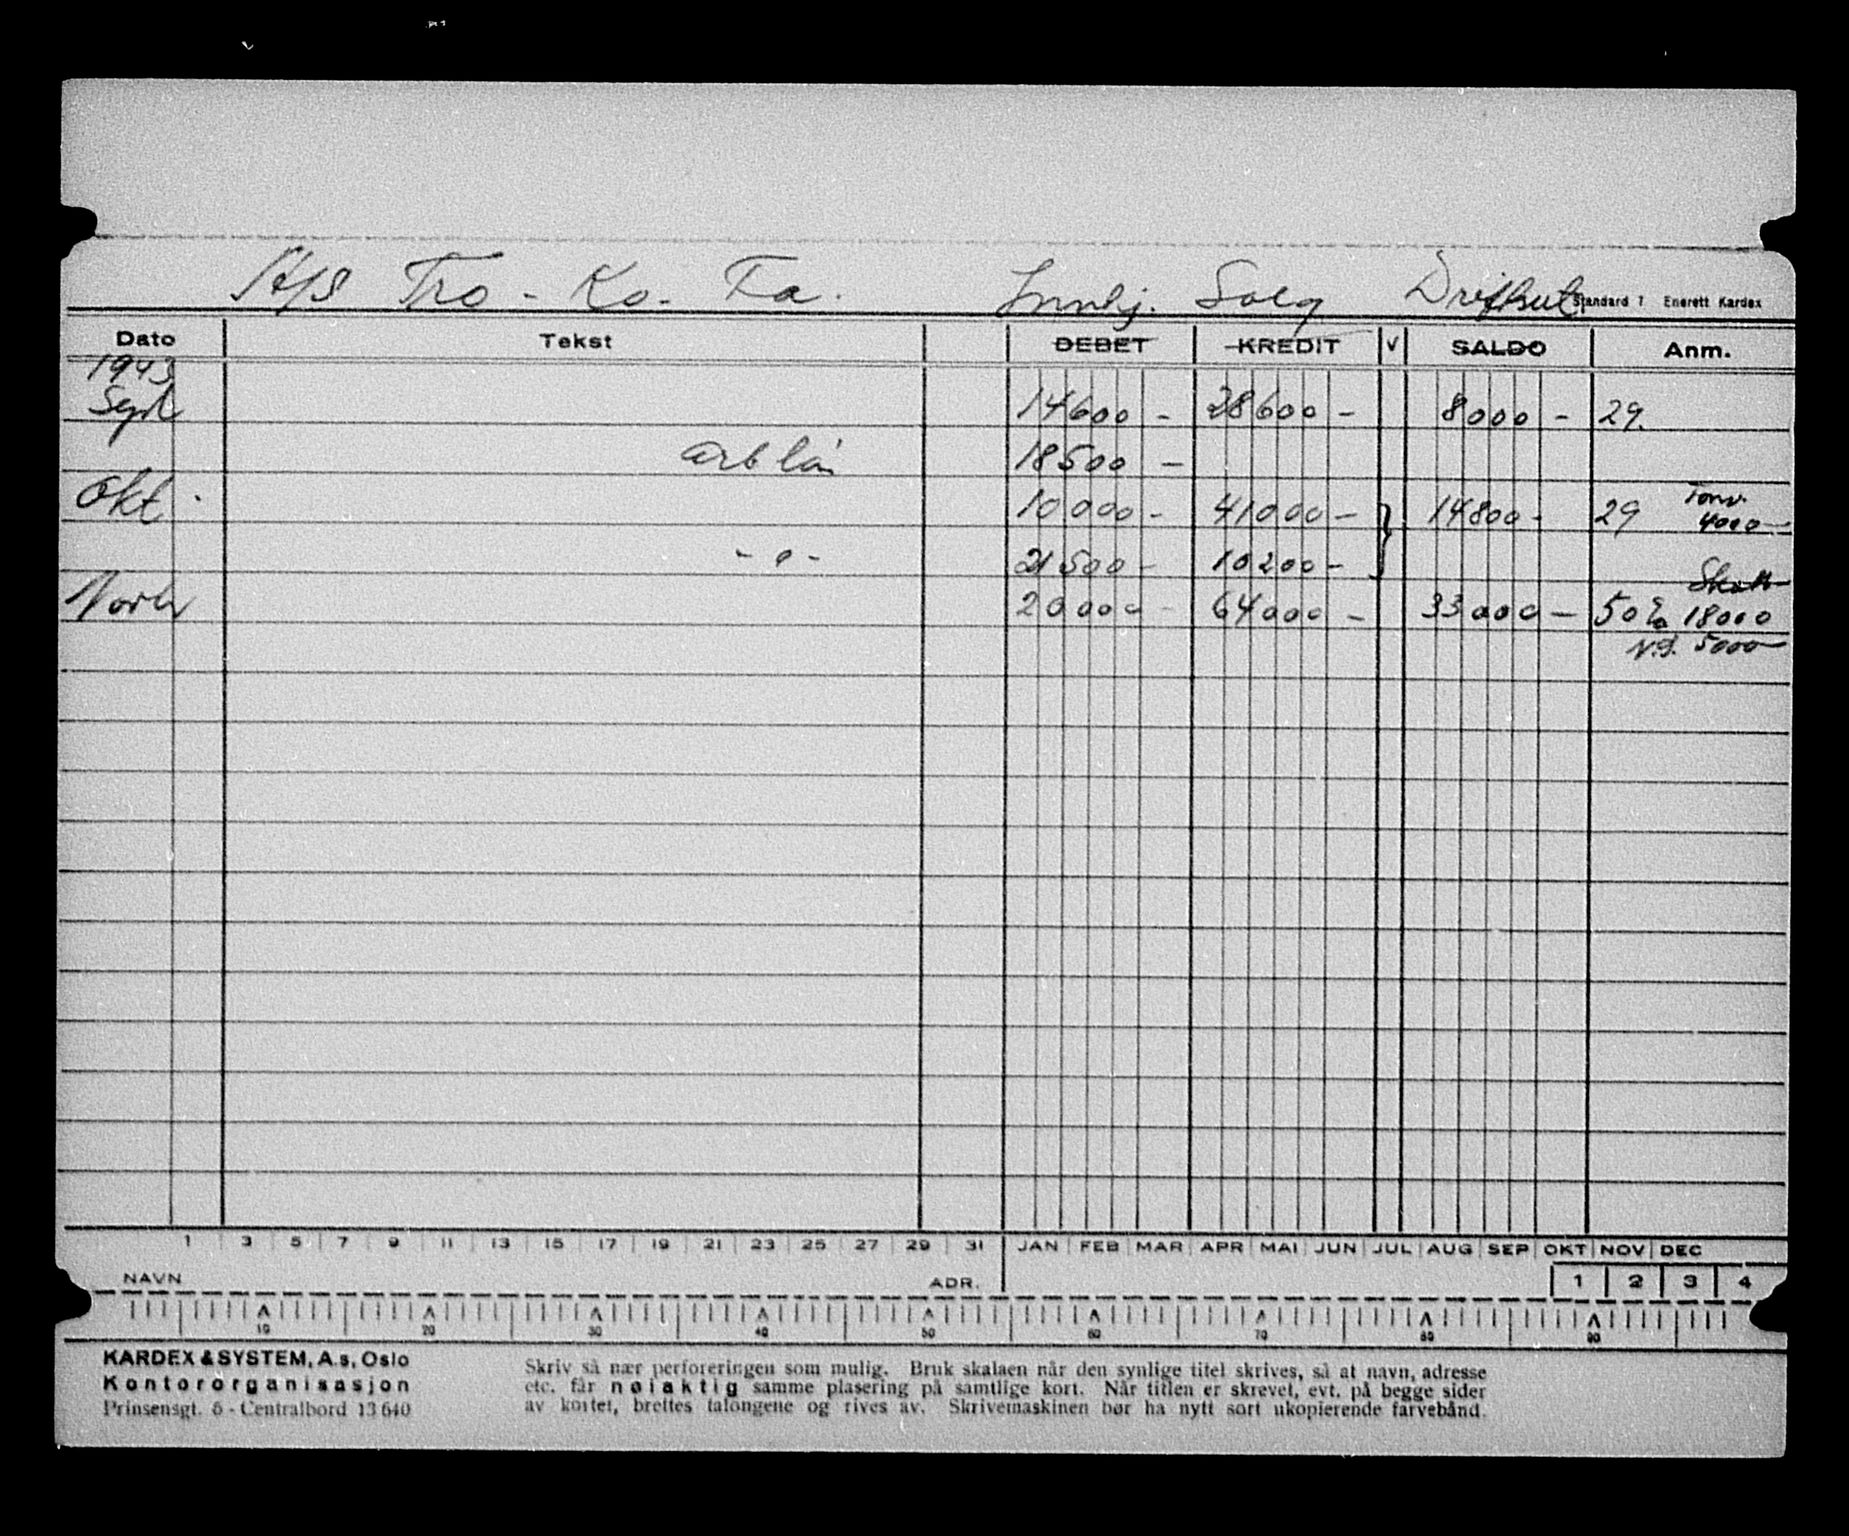 A/S Tro - Ko - Fa. Innkj. Salg Driftsut.
Standard 7 Enerett Kardex
Dato Tekst DEBET KREDIT V SALDO Anm.
1943
Sept 14600 - 28600 - 8000 - 29.
arb løn 18500 -
Okt. 10000 - 41000 - 14800 - 29 4000 -
- " - 21500 - 10200 -
Skatt
Novbr 20000 - 64000 - 33000 - 50 % 18000
N.S. 5000 -
1 3 5 7 9 11 13 15 17 19 21 23 25 27 29 31 JAN FEB MAR APR MAI JUN JUL AUG SEP OKT NOV DEC
NAVN ADR. 1 2 3 4
10 20 30 40 50 60 70 80 90
KARDEX & SYSTEM, A.s, Oslo
Kontororganisasjon
Prinsensgt. 6 - Centralbord 13 640
Skriv så nær perforeringen som mulig. Bruk skalaen når den synlige titel skrives, så at navn, adresse
etc. får nøiaktig samme plasering på samtlige kort. Når titlen er skrevet, evt. på begge sider
av kortet, brettes talongene og rives av. Skrivemaskinen bør ha nytt sort ukopierende farvebånd.